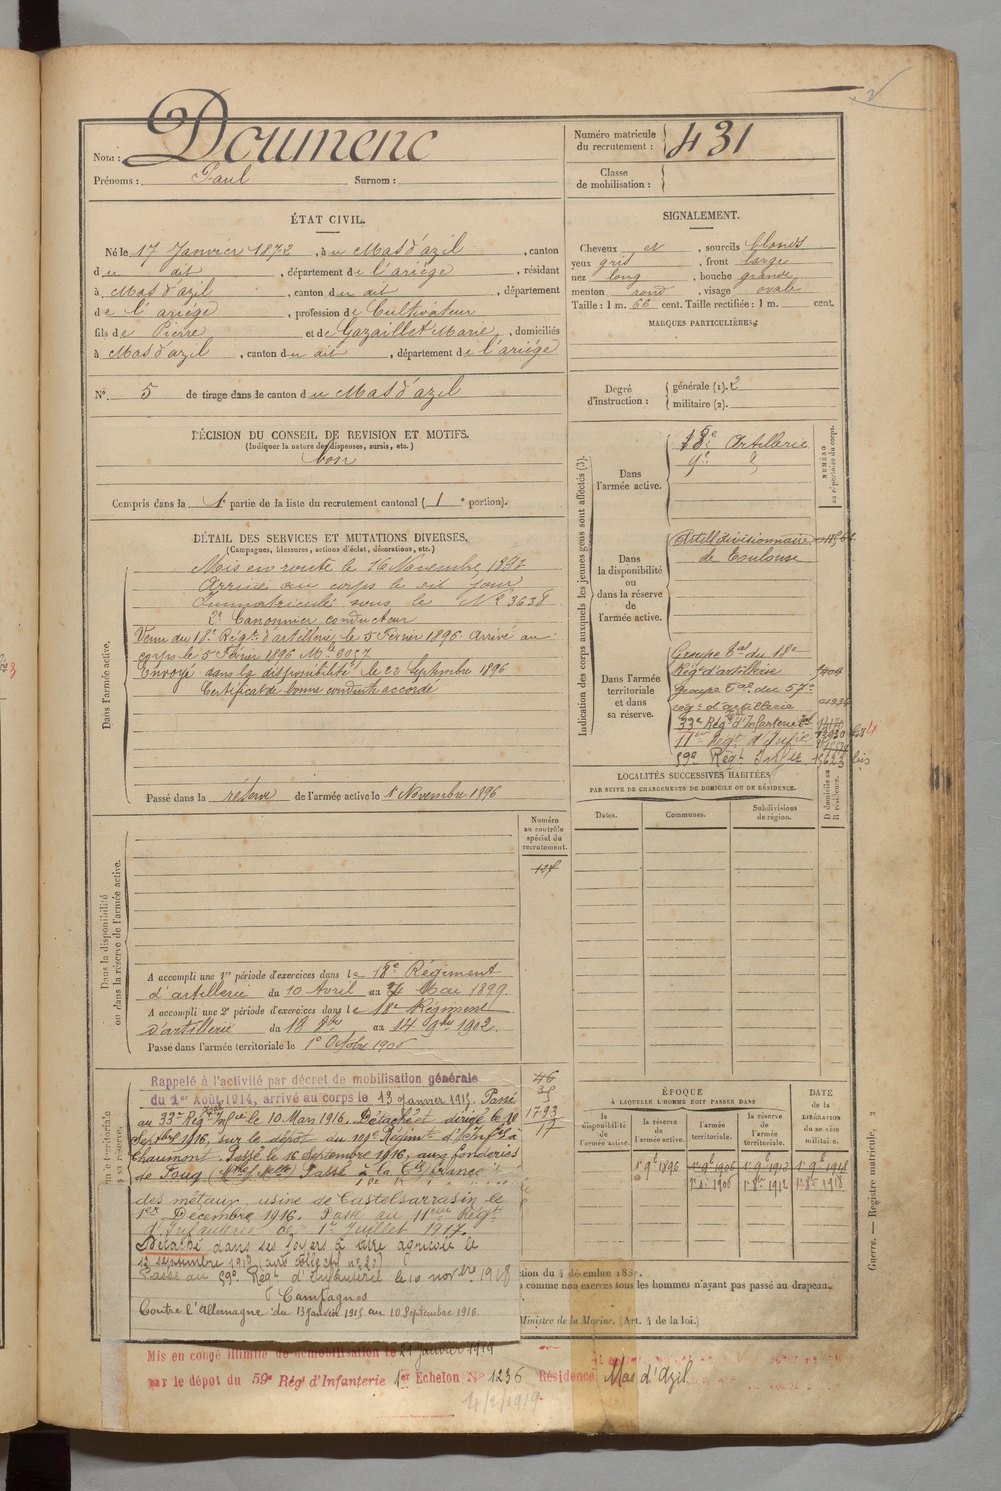 Nom : Doumenc
Prénoms : Paul Surnom :
Numéro matricule du recrutement : 431
Classe de mobilisation :
ÉTAT CIVIL.
Né le 17 Janvier 1872, à u Mas d'azil, canton
du dit, département de l'ariége, résidant
à Mas d'azil, canton du dit, département
de l'ariége, profession de Cultivateur
fils de Pierre et de Gazaillet Marie, domiciliés
à Mas d'azil, canton du dit, département de l'ariége
N° 5 de tirage dans le canton du Mas d'azil
DÉCISION DU CONSEIL DE REVISION ET MOTIFS.
(Indiquer la nature des dispenses, sursis, etc.)
bon
Compris dans la 1e partie de la liste du recrutement cantonal (1e portion).
SIGNALEMENT.
Cheveux et, sourcils blonds
yeux gris, front large
nez long, bouche grande
menton rond, visage ovale
Taille : 1 m. 66 cent. Taille rectifiée : 1 m. cent.
MARQUES PARTICULIÈRES
Degré d'instruction : générale (1). 2
militaire (2).
DÉTAIL DES SERVICES ET MUTATIONS DIVERSES.
(Campagnes, blessures, actions d'éclat, décorations, etc.)
Dans l'armée active.
Mis en route le 16 Novembre 1893
Arrivé au corps le dit jour
Immatriculé sous le N° 3638
2e Canonnier conducteur
Venu du 18e Régt d'artillerie le 5 Février 1896. Arrivé au
corps le 5 Février 1896 Mle 6057
Envoyé dans la disponibilité le 23 Septembre 1896
Certificat de bonne conduite accordé
Passé dans la réserve de l'armée active le 1 Novembre 1896
Indication des corps auxquels les jeunes gens sont affectés (3).
NUMÉRO au répertoire du corps.
Dans l'armée active.
18e Artillerie
9e
Dans la disponibilité ou dans la réserve de l'armée active.
Artillie divisionnaire
de Toulouse
Dans l'armée territoriale et dans sa réserve.
Groupe tal du 18e
Régt d'artillerie
Groupe Tal du 57e
régt d'artillerie
33e Régt d'Infanterie
11eme Régt d'Infie
59e Régt Infie
LOCALITÉS SUCCESSIVES HABITÉES
PAR SUITE DE CHANGEMENTS DE DOMICILE OU DE RÉSIDENCE.
Dates. Communes. Subdivisions de région. D domicile ou R résidence.
Dans la disponibilité ou dans la réserve de l'armée active.
Numéro au contrôle spécial du recrutement.
A accompli une 1re période d'exercices dans le 18e Régiment
d'artillerie du 10 Avril au Mai 1899.
A accompli une 2e période d'exercices dans le 18e Régiment
d'artillerie du 18 8bre au 14 9bre 1902.
Passé dans l'armée territoriale le 1e Octobre 1906
Rappelé à l'activité par décret de mobilisation générale
du 1er Août 1914, arrivé au corps le 13 Janvier 1915. Passé
au 33e Régt Infie le 10 Mars 1916. Détaché et dirigé le 10
Septbre 1916, sur le dépôt du 109e Régimt d'Infie à
Chaumont. Passé le 16 Septembre 1916, aux fonderies
de Foug (Mthe & Mlle) Passé à la Cie france
des métaux, usine de Castelsarrasin le
1er Décembre 1916. Passé au 11eme Régt
d'Infanterie le 1er Juillet 1917.
Détaché dans ses foyers à titre agricole le
12 septembre 1917
Passé au 59e Régt d'Infanterie le 10 novbre 1918
Campagnes
Contre l'Allemagne : du 13 Janvier 1915 au 10 Septembre 1916.
1793
17
ÉPOQUE
À LAQUELLE L'HOMME DOIT PASSER DANS
la disponibilité de l'armée active. la réserve de l'armée active. l'armée territoriale. la réserve de l'armée territoriale.
DATE de la LIBÉRATION du service militaire.
1e 9e 1896 1e 9e 1906 1e 9e 1912 1e 9e 1918
1e 8e 1906 1e 8e 1912 1e 8e 1918
comme non exercés tous les hommes n'ayant pas passé au drapeau.
Ministre de la Marine. (Art. 4 de la loi.)
Mis en congé illimité de démobilisation le 21 Janvier 1919
par le dépôt du 59e Régt d'Infanterie 1er Echelon N° 1236 Résidence Mas d'Azil
14/2/1919
Guerre. — Registre matricule, 2